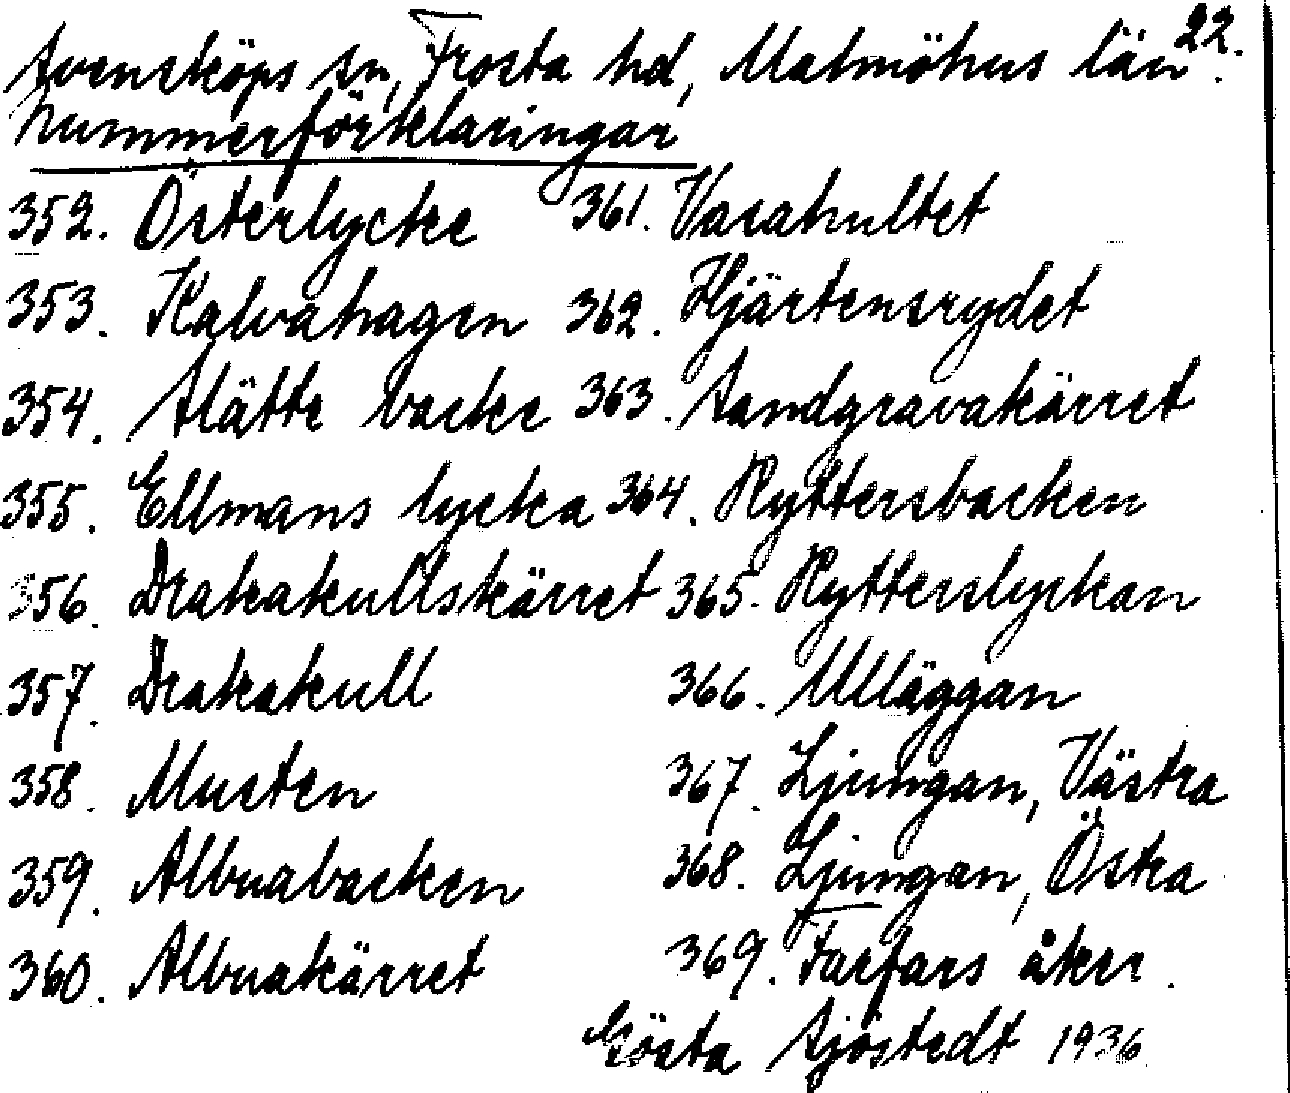 22.
Svensköps sn, Frosta hd, Malmöhus län.
Nummerförklaringar
352. Österlycke 361. Vasahultet
353. Kalvahagen 362. Hjärtensrydet
354. Slätte backe 363. Sandgravakärret
355. Ellmans lycka 364. Ryttersbacken
356. Drakakullskärret 365. Rytterslyckan
357. Drakakull 366. Ulläggan
358. Musten 367. Ljungan, Västra
359. Albuabacken 368. Ljungan, Östra
360. Albuakärret 369. Farfars åker.
Gösta Sjöstedt 1936